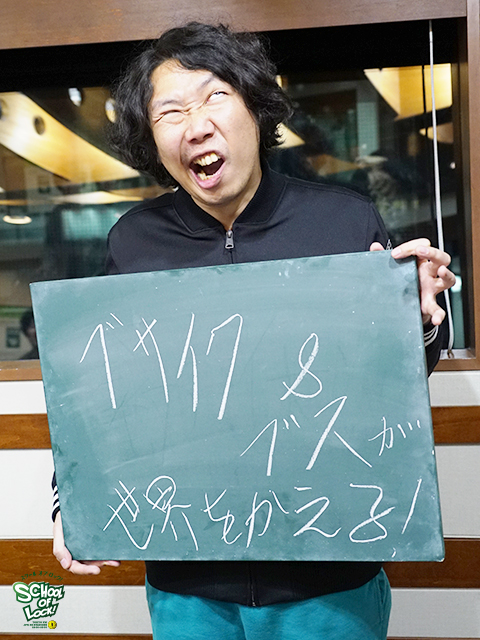 ブサイク &
ブスが
世界をかえる!
SCHOOL
OF
LOCK!